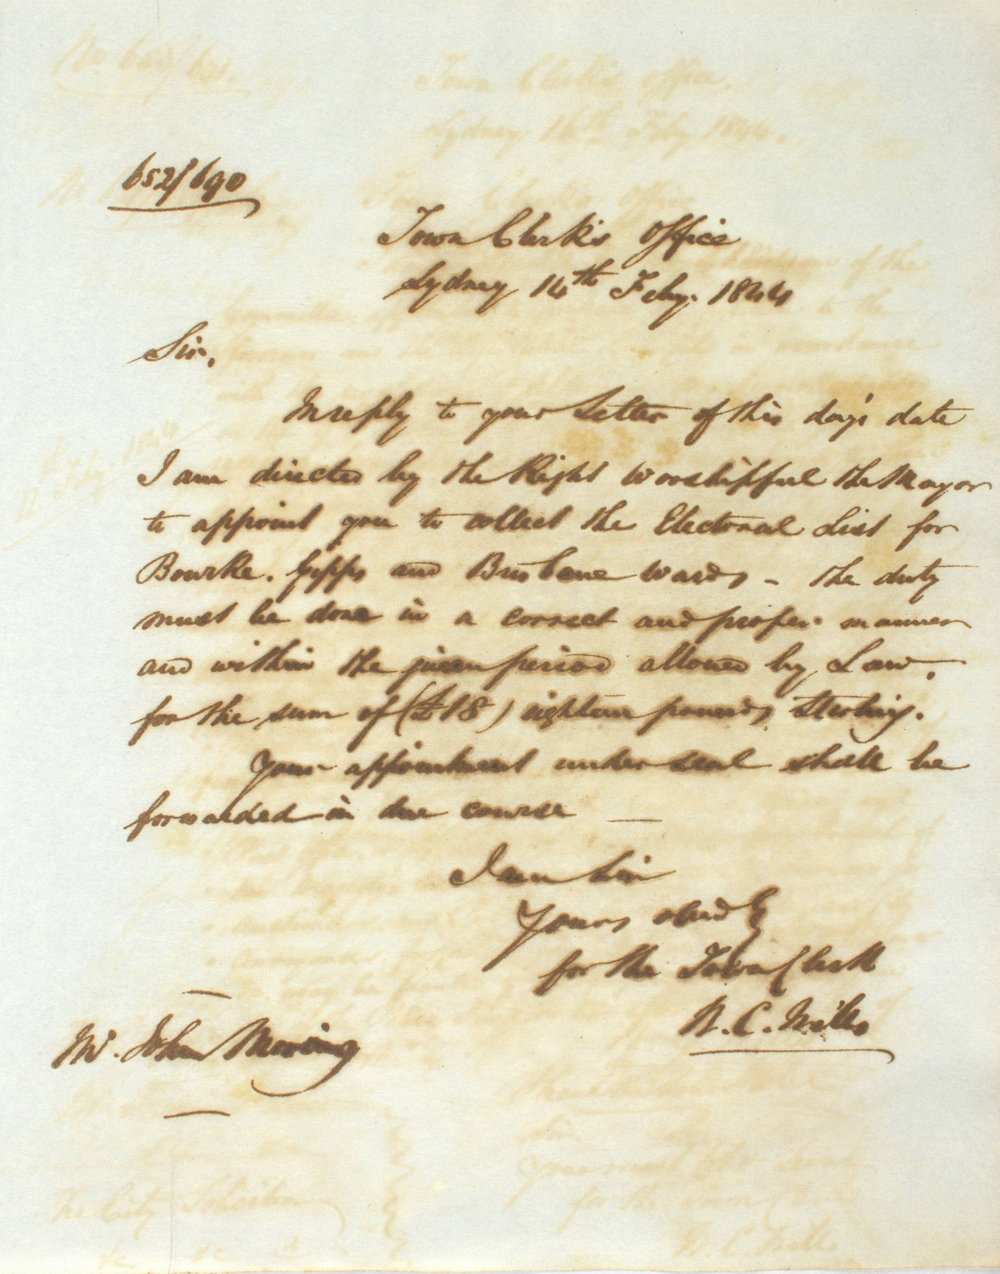 652/690
Town Clerk's Office
Sydney 14th Feby. 1844
Sir,
In reply to your Letter of this day's date
I am directed by the Right Worshipful the Mayor
to appoint you to collect the Electoral List for
Bourke. Gipps and Brisbane Wards - The duty
must be done in a correct and proper manner
and within the given period allowed by Law,
for the sum of (£18) eighteen pounds Sterling.
Your appointment under seal shall be
forwarded in due course —
I am Sir
Yours obedt
for the Town Clerk
Mr. John